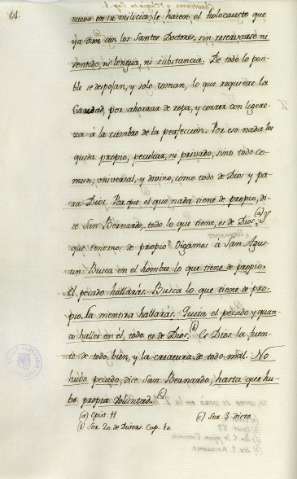 84.
en su milicia, le hacen el holocausto que
ya con los Santos Doctores, sin reservarse ni
sentido, ni lengua, ni substancia. De todo lo posi-
ble se despojan, y solo toman, lo que requiere la
por ahorrar de ropa, y correr con ligere-
za à la cumbre de la perfección. Por eso nada les
queda propio, peculiar, ni privado, sino todo co-
mun, universal, y divino, como todo de Dios y pa-
ra Dios. Porque el que nada tiene de propio, di-
ce San Bernardo, todo lo que tiene, es de Dios. (a) Y
que tenemos de propio? Digamos à San Agus-
tin: Busca en el hombre lo que tiene de propio.
El pecado hallarás. Busca lo que tiene de pro-
pio, la mentira hallarás. el pecado, y quan-
to halles en él, todo es de Dios. (b) Es Dios la fuen-
te de todo bien, y la creatura de todo mal. No
hubo pecado, dice San Bernardo, hasta que hu-
bo propia voluntad. (c)
(a) (c) Ser. 3.
(b) Ser. Cap.